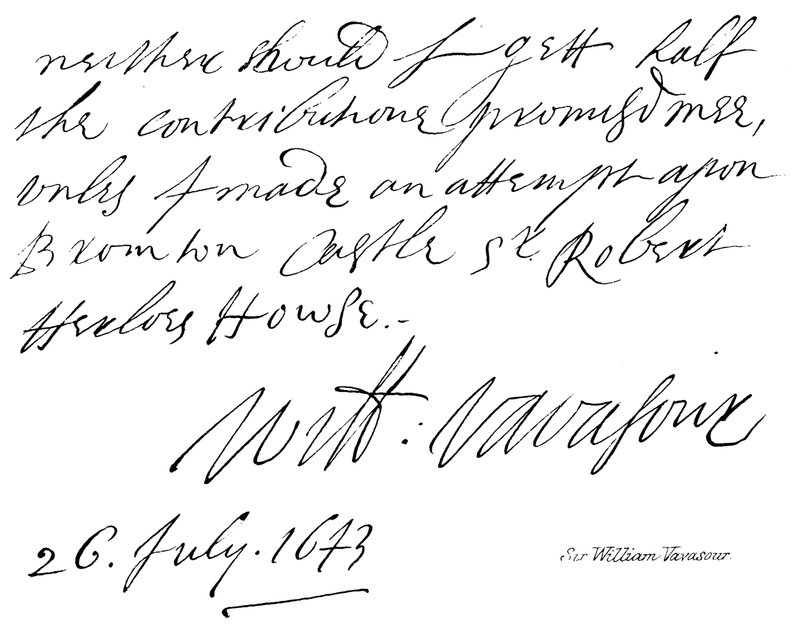 neither should I gett half
the contributione promisd mee,
vnles I made an attempt apon
Bromton Castle sr. Robert
Herloes Howse.-
Will: Vavasour
26. July. 1643
Sir William Vavasour.